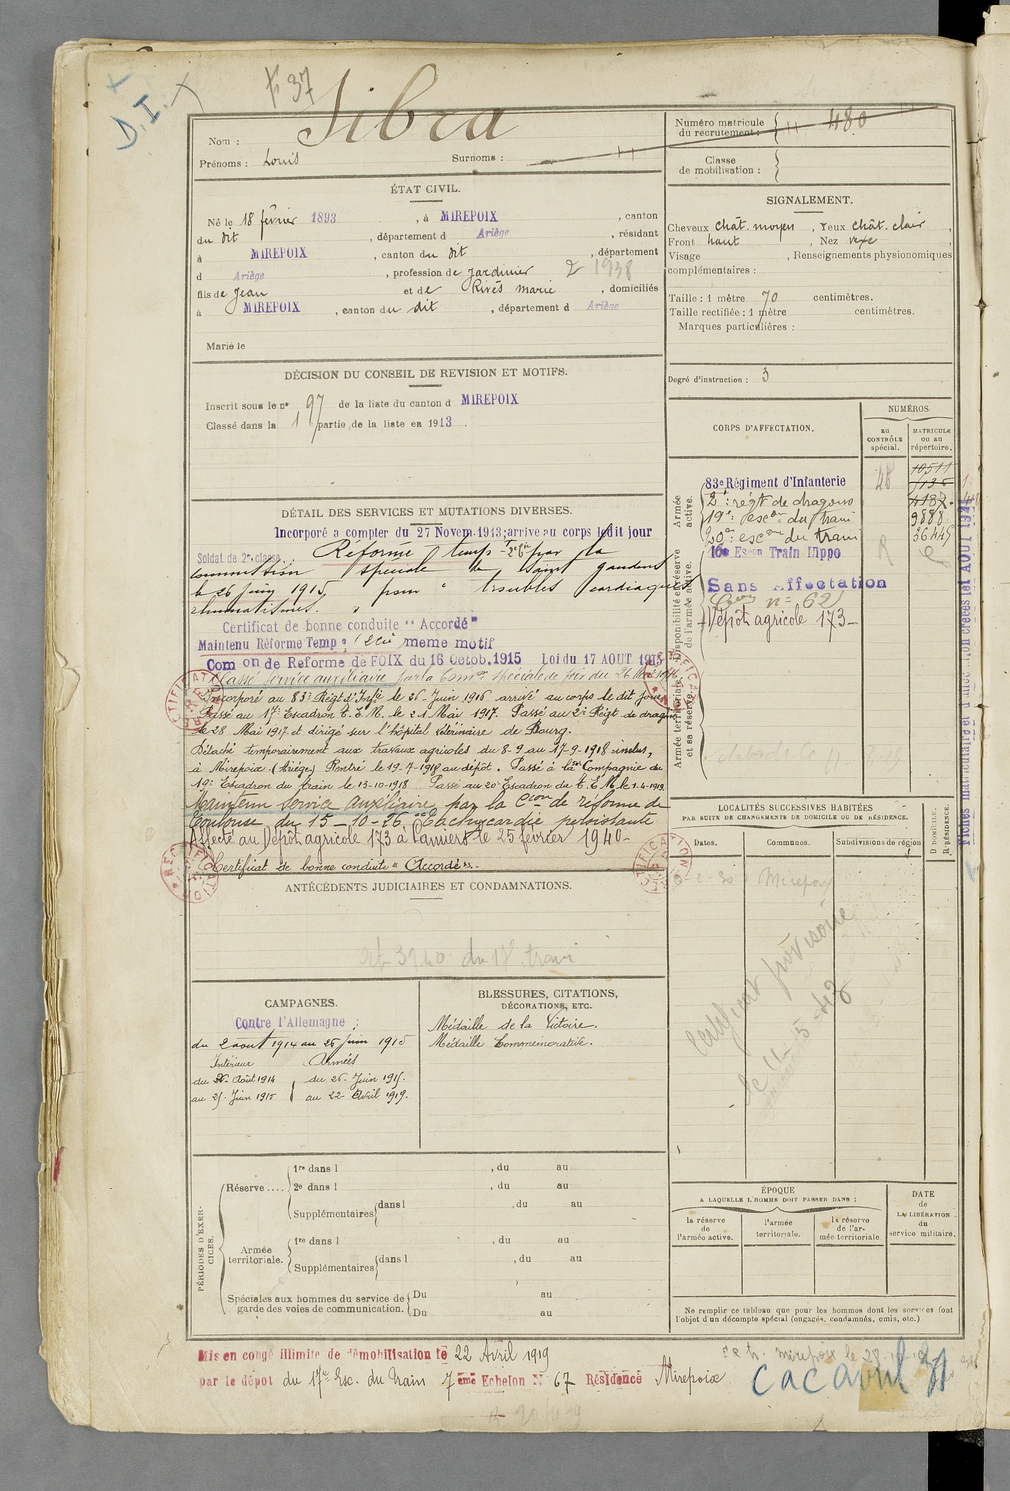 F 37
D.I. X
Nom : Sibra
Prénoms : Louis Surnoms :
Numéro matricule du recrutement : 480
Classe de mobilisation :
ÉTAT CIVIL.
Né le 18 février 1893, à MIREPOIX, canton
du dit, département d Ariège, résidant
à MIREPOIX, canton du dit, département
d Ariège, profession de jardinier 2 1938
fils de Jean et de Rivés Marie, domiciliés
à MIREPOIX, canton du dit, département d Ariège
Marié le
SIGNALEMENT.
Cheveux chât. moyen, Yeux chât. clair,
Front haut, Nez vexe,
Visage , Renseignements physionomiques
complémentaires :
Taille : 1 mètre 70 centimètres.
Taille rectifiée : 1 mètre centimètres.
Marques particulières :
Degré d'instruction : 3
DÉCISION DU CONSEIL DE REVISION ET MOTIFS.
Inscrit sous le n° 97 de la liste du canton d MIREPOIX
Classé dans la 1 partie de la liste en 1913.
DÉTAIL DES SERVICES ET MUTATIONS DIVERSES.
Incorporé a compter du 27 Novem. 1913; arrive au corps ledit jour
Soldat de 2e classe. Réformé temps re 2° Con par la
commission spéciale de Saint Gaudens
le 26 juin 1915 pour " troubles cardiaques
rhumatismes. "
Certificat de bonne conduite "Accordé"
Maintenu Réforme Temp; meme motif
Com on de Reforme de FOIX du 16 Octob. 1915 Loi du 17 AOUT 1915
Classé service auxiliaire par la Comon spéciale de Foix du 26 Mai 1916.
Incorporé au 83e Régt d'Infie le 26 Juin 1916 arrivé au corps le dit jour
Passé au 17e Escadron T.E.M. le 21 Mai 1917. Passé au 2e Régt de dragons
le 28 Mai 1917 et dirigé sur l'hôpital vétérinaire de Bourg.
Détaché temporairement aux travaux agricoles du 8-9 au 17-9-1918 inclus,
à Mirepoix (Ariège) Rentré le 19-9-1918 au dépôt. Passé à la Compagnie du
19e Escadron du train le 13-10-1918 Passé au 20e Escadron du T.E.M. le 1-4-1919
Maintenu service auxiliaire, par la Con de réforme de
Toulouse du 15-10-26 "Tachycardie persistante
Affecté au Dépôt agricole 173 à Pamiers le 25 février 1940-
Certificat de bonne conduite "Accordé".
CORPS D'AFFECTATION.
NUMÉROS
au contrôle spécial.
MATRICULE ou au répertoire.
Armée active.
Disponibilité et réserve de l'armée active.
Armée territoriale et sa réserve.
83e Régiment d'Infanterie
2e : régt de dragons
19e : escon du train
20e : escon du train
16e Escon Train Hippo
Sans Affectation
n° 62
Dépôt agricole 173-
10511
4187
9888
36445
ANTÉCÉDENTS JUDICIAIRES ET CONDAMNATIONS.
LOCALITÉS SUCCESSIVES HABITÉES
PAR SUITE DE CHANGEMENTS DE DOMICILE OU DE RÉSIDENCE.
Dates. Communes. Subdivisions de région D DOMICILE. R RÉSIDENCE.
Mirepoix
Certificat provisoire
le 11-5-43
CAMPAGNES.
Contre l'Allemagne :
du 2 aout 1914 au 26 juin 1915
Intérieur Armées
du 2 Août 1914 du 26 Juin 1915.
au 25 Juin 1915 au 22 Avril 1919.
BLESSURES, CITATIONS,
DÉCORATIONS, ETC.
Médaille de la Victoire.
Médaille Commémorative.
PÉRIODES D'EXERCICES.
Réserve.... 1re dans l , du au
2e dans l , du au
Supplémentaires dans l , du au
Armée territoriale. 1re dans l , du au
Supplémentaires dans l , du au
Spéciales aux hommes du service de garde des voies de communication. Du au
Du au
ÉPOQUE
A LAQUELLE L'HOMME DOIT PASSER DANS :
la réserve de l'armée active.
l'armée territoriale.
la réserve de l'armée territoriale.
DATE de LA LIBÉRATION du service militaire.
Ne remplir ce tableau que pour les hommes dont les services font
l'objet d'un décompte spécial (engagés, condamnés, omis, etc.)
Mis en congé illimité de démobilisation le 22 Avril 1919
par le dépôt du 17e Esc. du Train 7ème Echelon N° 67 Résidence Mirepoix